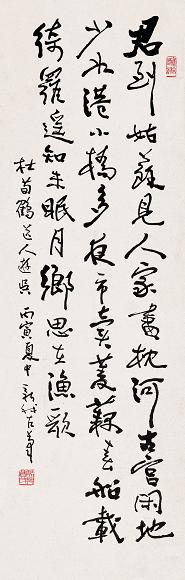 君到姑蘇見人家盡枕河古宮閑地
少水港小橋多夜市賣菱藕春船載
綺羅遙知未眠月鄉思在漁歌
杜荀鶴送人遊吳 丙寅夏中